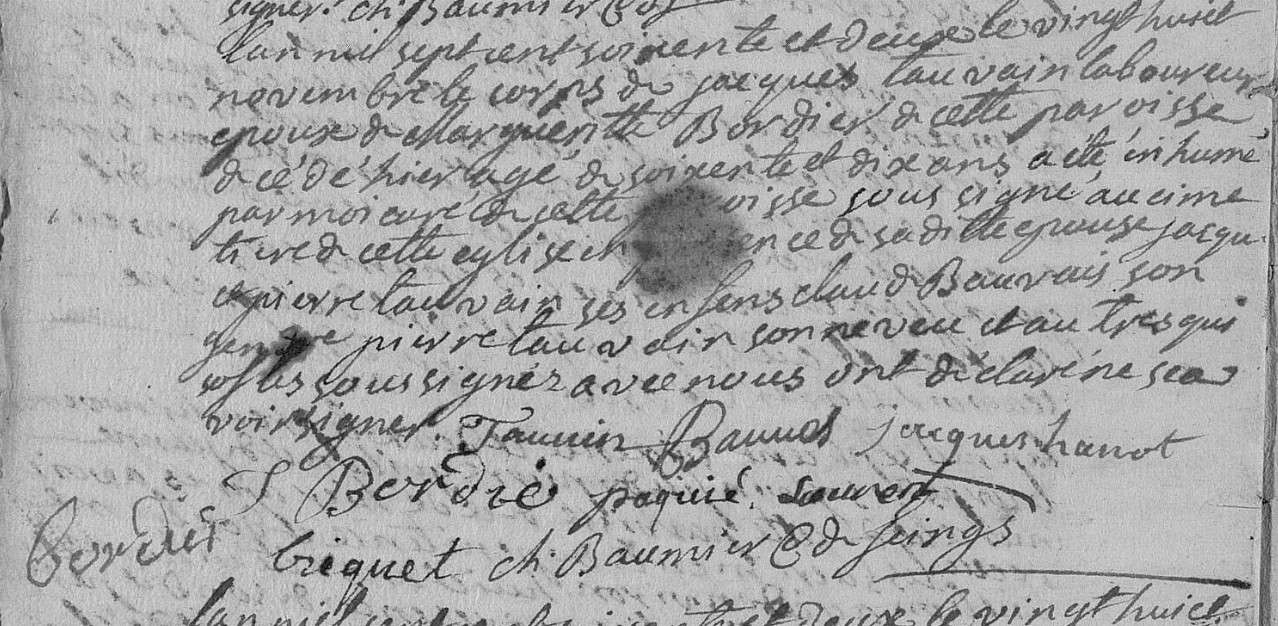 signer. ch Baumier C de
Lan mil sept cent soixente et deux le vingt huict
novembre le corps de jacques tauvain laboureur
epoux de Margueritte Bordier de cette paroisse
décédé hier agé de soixente et dix ans a été inhumé
par moi curé de cette oisse sous signé au cime
tiere de cette eglise en ence de sa ditte epouse jacqu
et pierre tauvain ses enfens claud Bauvais son
gendre pierre tauvain son neveu et autres qui
sous signéz avec nous ont déclaré ne sca
voir signer. Tauvin Bauves jacques hanot
J Bordié paquié. Lauvent
Bordier
briquet ch. Baumier C de seings
Lan mil sept cent soixente et deux le vingt huict